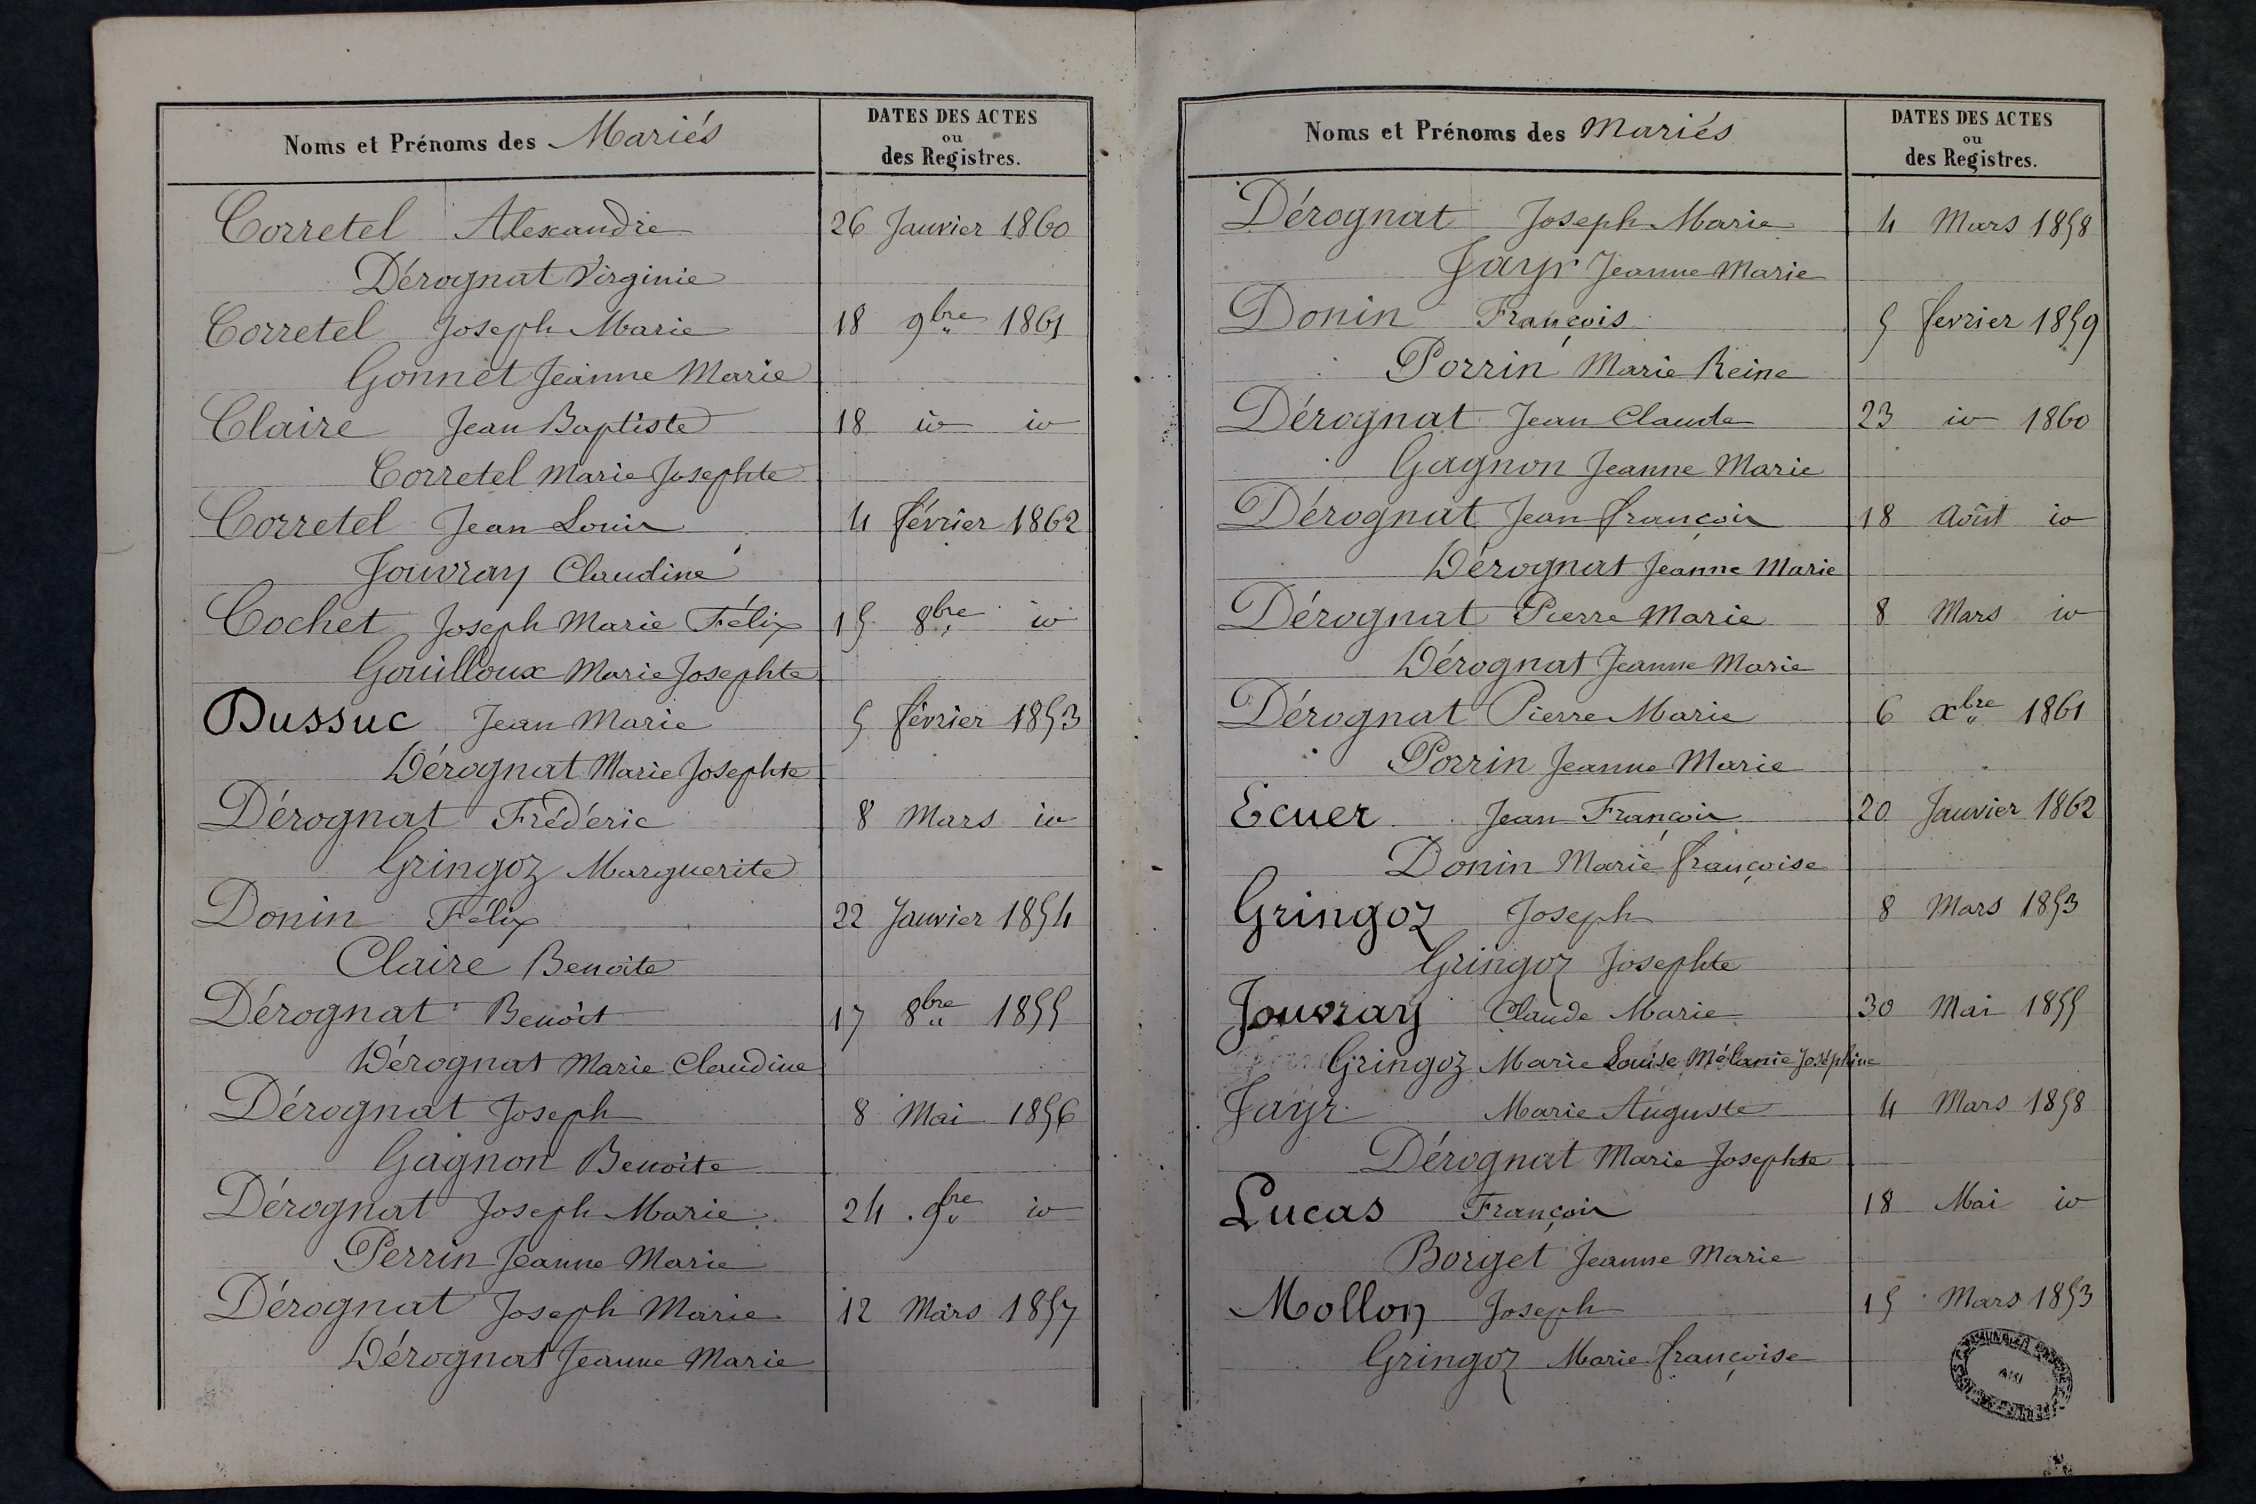 Noms et Prénoms des Mariés
DATES DES ACTES
ou
des Registres.
Corretel Alexandre 26 Janvier 1860
Dérognat Virginie
Corretel Joseph Marie 18 9bre 1861
Gonnet Jeanne Marie
Claire Jean Baptiste 18 io io
Corretel Marie Josephte
Corretel Jean Louis 4 février 1862
Jouvray Claudine
Cochet Joseph Marie Félix 15 8bre io
Gouilloux Marie Josephte
Dussuc Jean Marie 5 février 1853
Dérognat Marie Josephte
Dérognat Frédéric 8 Mars io
Gringoz Marguerite
Donin Félix 22 Janvier 1854
Claire Benoite
Dérognat Benoit 17 8bre 1855
Dérognat Marie Claudine
Dérognat Joseph 8 Mai 1856
Gagnon Benoite
Dérognat Joseph Marie 24 9bre io
Perrin Jeanne Marie
Dérognat Joseph Marie 12 Mars 1857
Dérognat Jeanne Marie
Noms et Prénoms des Mariés
DATES DES ACTES
ou
des Registres.
Dérognat Joseph Marie 4 Mars 1858
Jayr Jeanne Marie
Donin François 5 fevrier 1859
Porrin Marie Reine
Dérognat Jean Claude 23 io 1860
Gagnon Jeanne Marie
Dérognat Jean françois 18 Août io
Dérognat Jeanne Marie
Dérognat Pierre Marie 8 Mars io
Dérognat Jeanne Marie
Dérognat Pierre Marie 6 xbre 1861
Porrin Jeanne Marie
Ecuer Jean François 20 Janvier 1862
Donin Marie françoise
Gringoz Joseph 8 Mars 1853
Gringoz Josephte
Jouvray Claude Marie 30 Mai 1855
Gringoz Marie Louise Mélanie Joséphine
Jayr Marie Auguste 4 Mars 1858
Dérognat Marie Josephte
Lucas François 18 Mai io
Borget Jeanne Marie
Mollon Joseph 15 Mars 1853
Gringoz Marie françoise